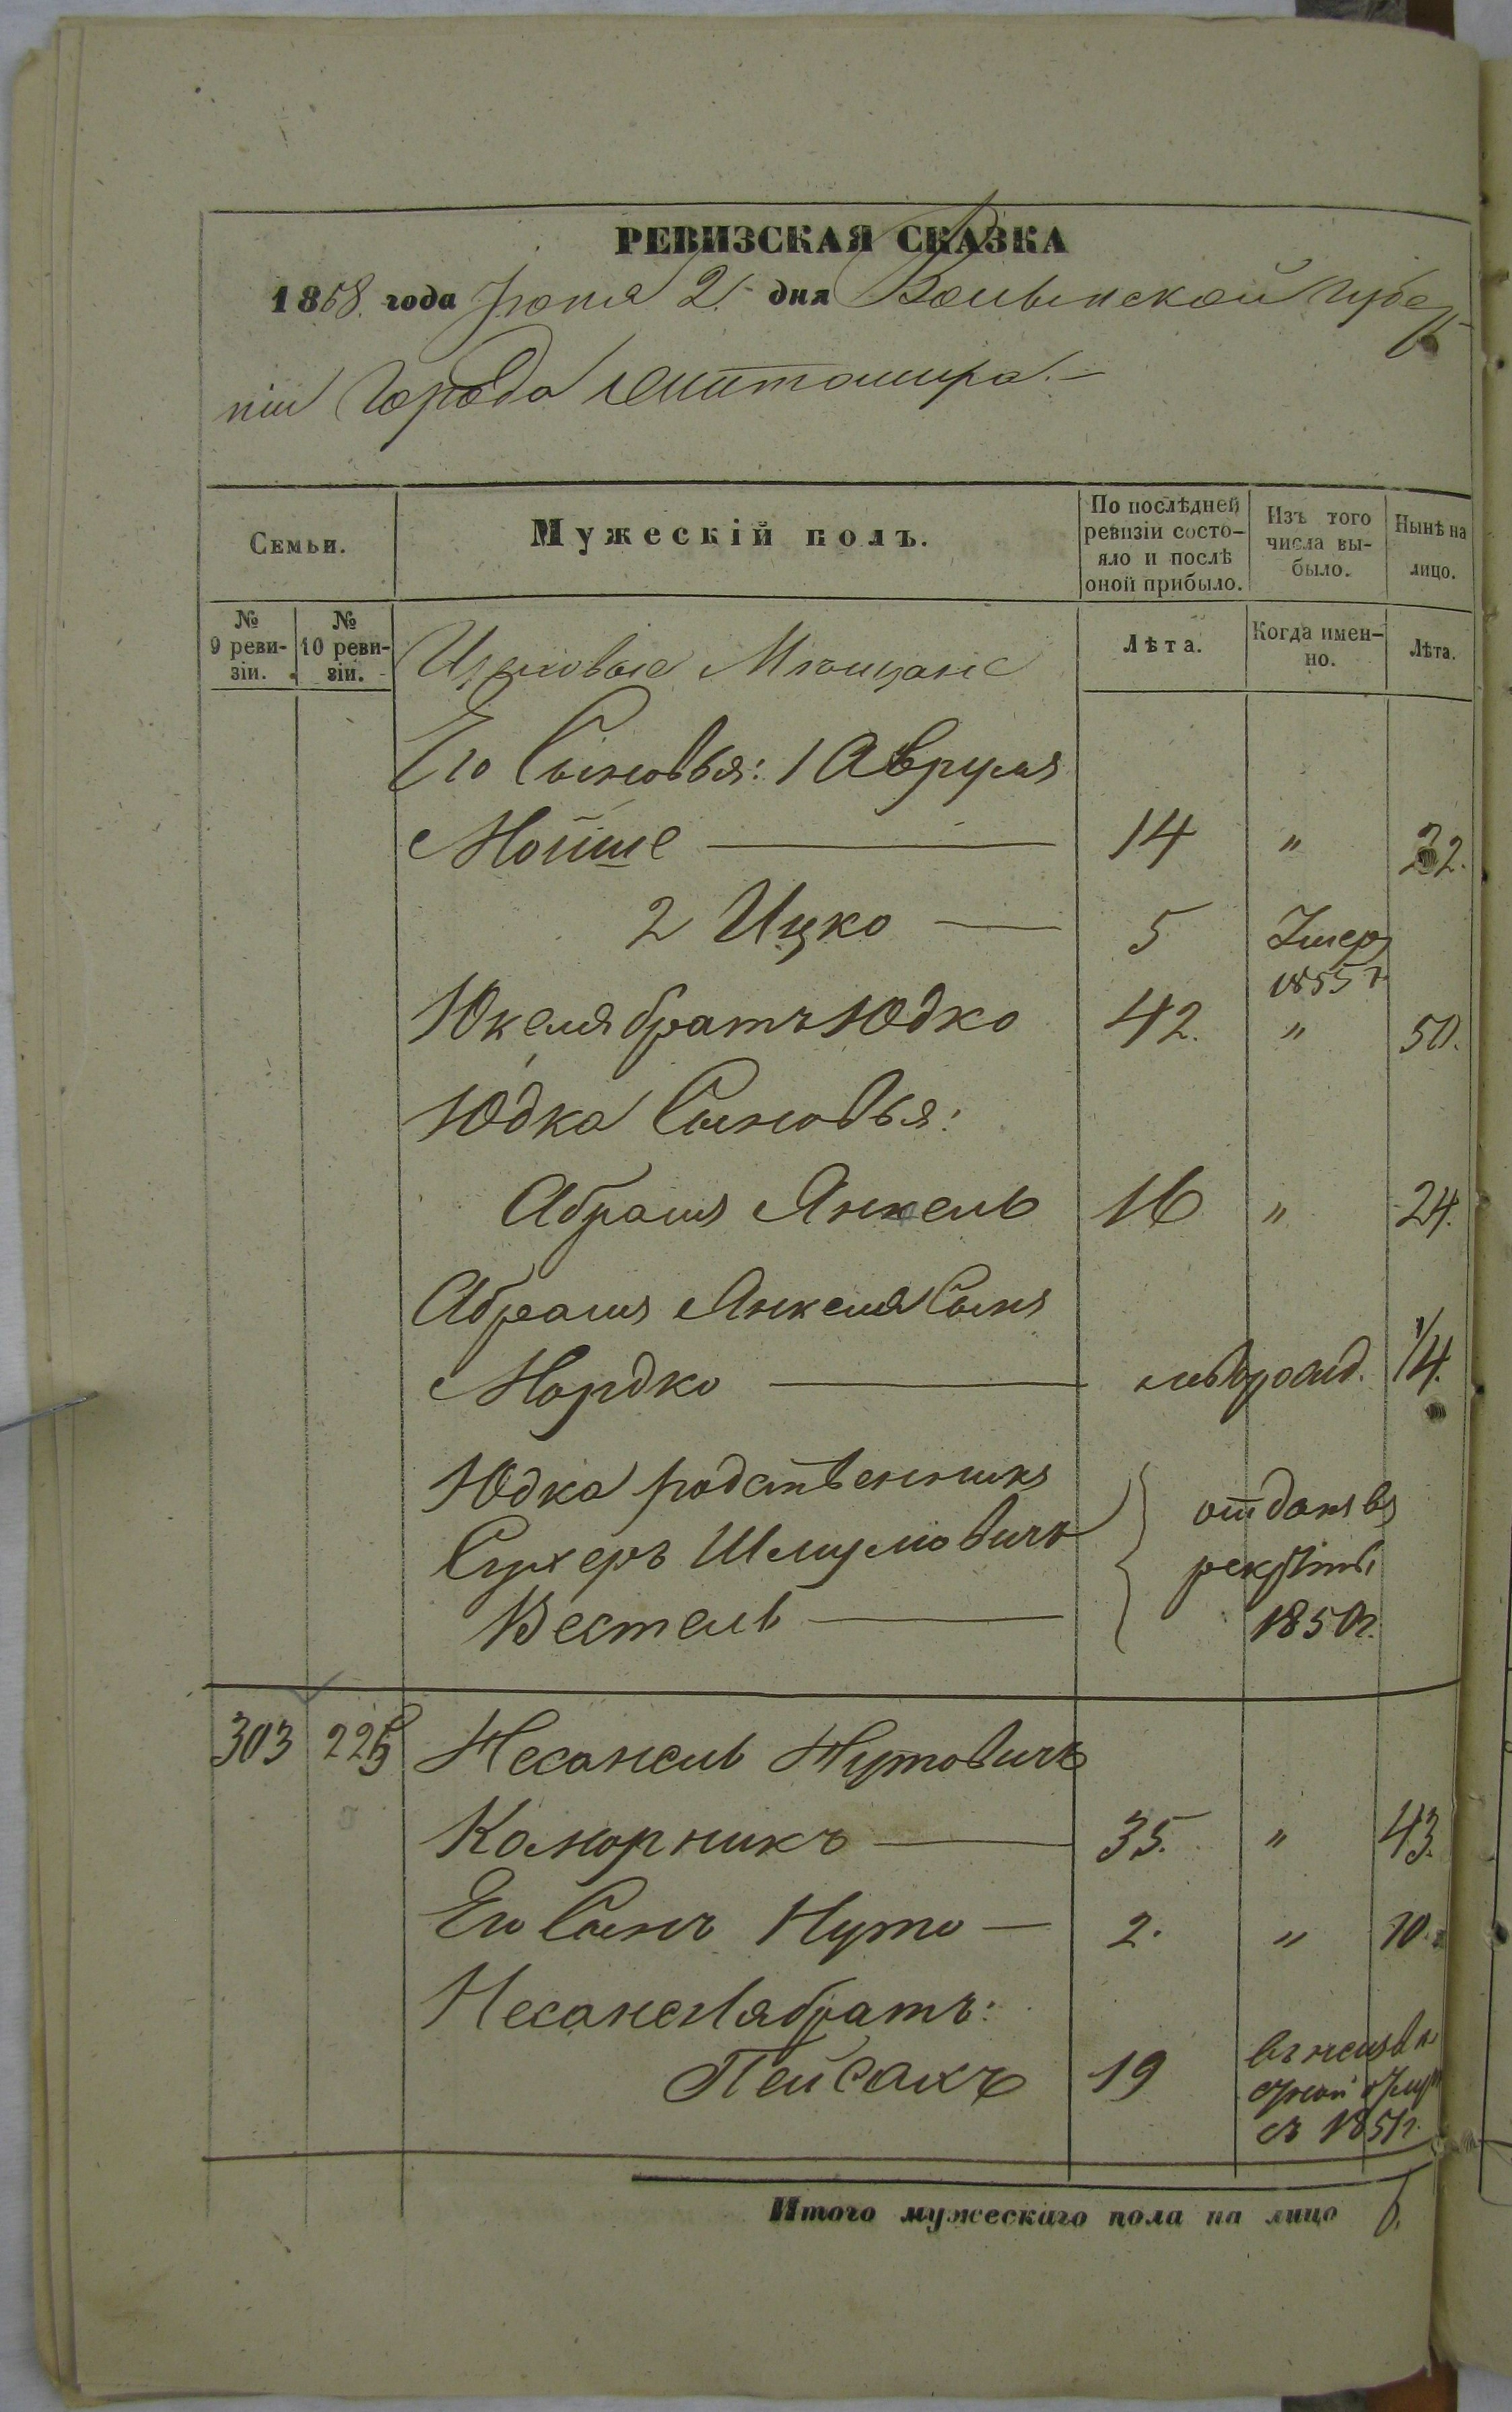 РЕВИЗСКАЯ СКАЗКА
1858 года Іюня 2 дня Волынской Губер
ніи Города Житомира.
Семьи.
Мужескій полъ.
По послѣдней ревизіи состо-
яло и послѣ
оной прибыло.
Изъ того
числа вы-
было.
Нынѣ на
лицо.
№
9 реви-
зіи.
№
10 реви-
зіи.
Мѣщане
Лѣта.
Когда имен-
но.
Лѣта.
Его Сыновья: 1 Аврумъ
Мойше — 14 " 22.
2 Ицко — 5 Умеръ
1855 г
Юкеля братъ Юдко 42. " 50.
Юдка Сыновья:
Абрамъ Янкель 16 " 24.
Абрамъ Янкеля Сынъ
Мордко — новорожд. 1/4.
Юдка родственникъ
Сухеръ Шмулювичъ
Вестель —
отданъ въ
рекруты
1850г.
303 225 Несанель Нутовичъ
Коморникъ — 35. " 43.
Его Сынъ Нуто — 2. " 10.
Несанеля братъ:
Пейсахъ 19
съ 1851г.
Итого мужескаго пола на лицо 6.